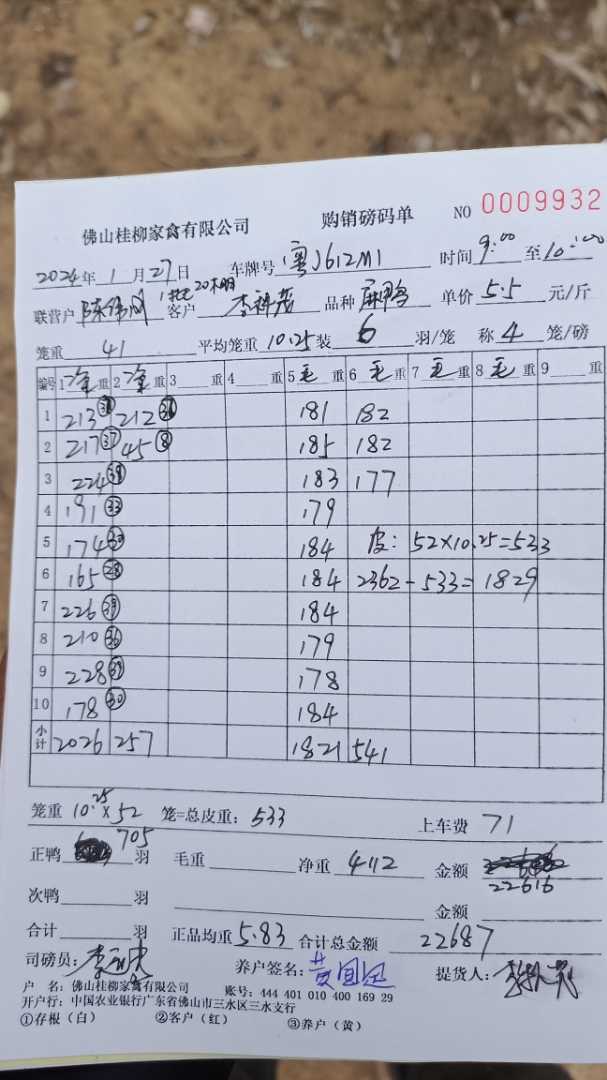 佛山桂柳家禽有限公司 购销磅码单 NO 0009932
2024年 1 月 27 日 车牌号 粤J612M1 时间 9:00 至 10:00
联营户 客户 李祥茂 品种 麻鸭 单价 5.5 元/斤
笼重 41 平均笼重 10.25 装 6 羽/笼 称 4 笼/磅
编号 1 净 重 2 净 重 3 重 4 重 5 毛 重 6 毛 重 7 毛 重 8 毛 重 9 重
1 213 38 212 36 181 182
2 217 37 45 8 185 182
3 224 38 183 177
4 191 33 179
5 174 30 184 皮: 52×10.25=533
6 165 28 184 2362-533=1829
7 226 39 184
8 210 36 179
9 228 39 178
10 178 30 184
小计 2026 257 1821 541
笼重 10.25×52 笼=总皮重: 533 上车费 71
正鸭 705 羽 毛重 净重 4112 金额 22616
次鸭 羽 金额
合计 羽 正品均重 5.83 合计总金额 22687
司磅员: 养户签名: 提货人:
户 名: 佛山桂柳家禽有限公司 账号: 444 401 010 400 169 29
开户行: 中国农业银行广东省佛山市三水区三水支行
①存根(白) ②客户(红) ③养户(黄)